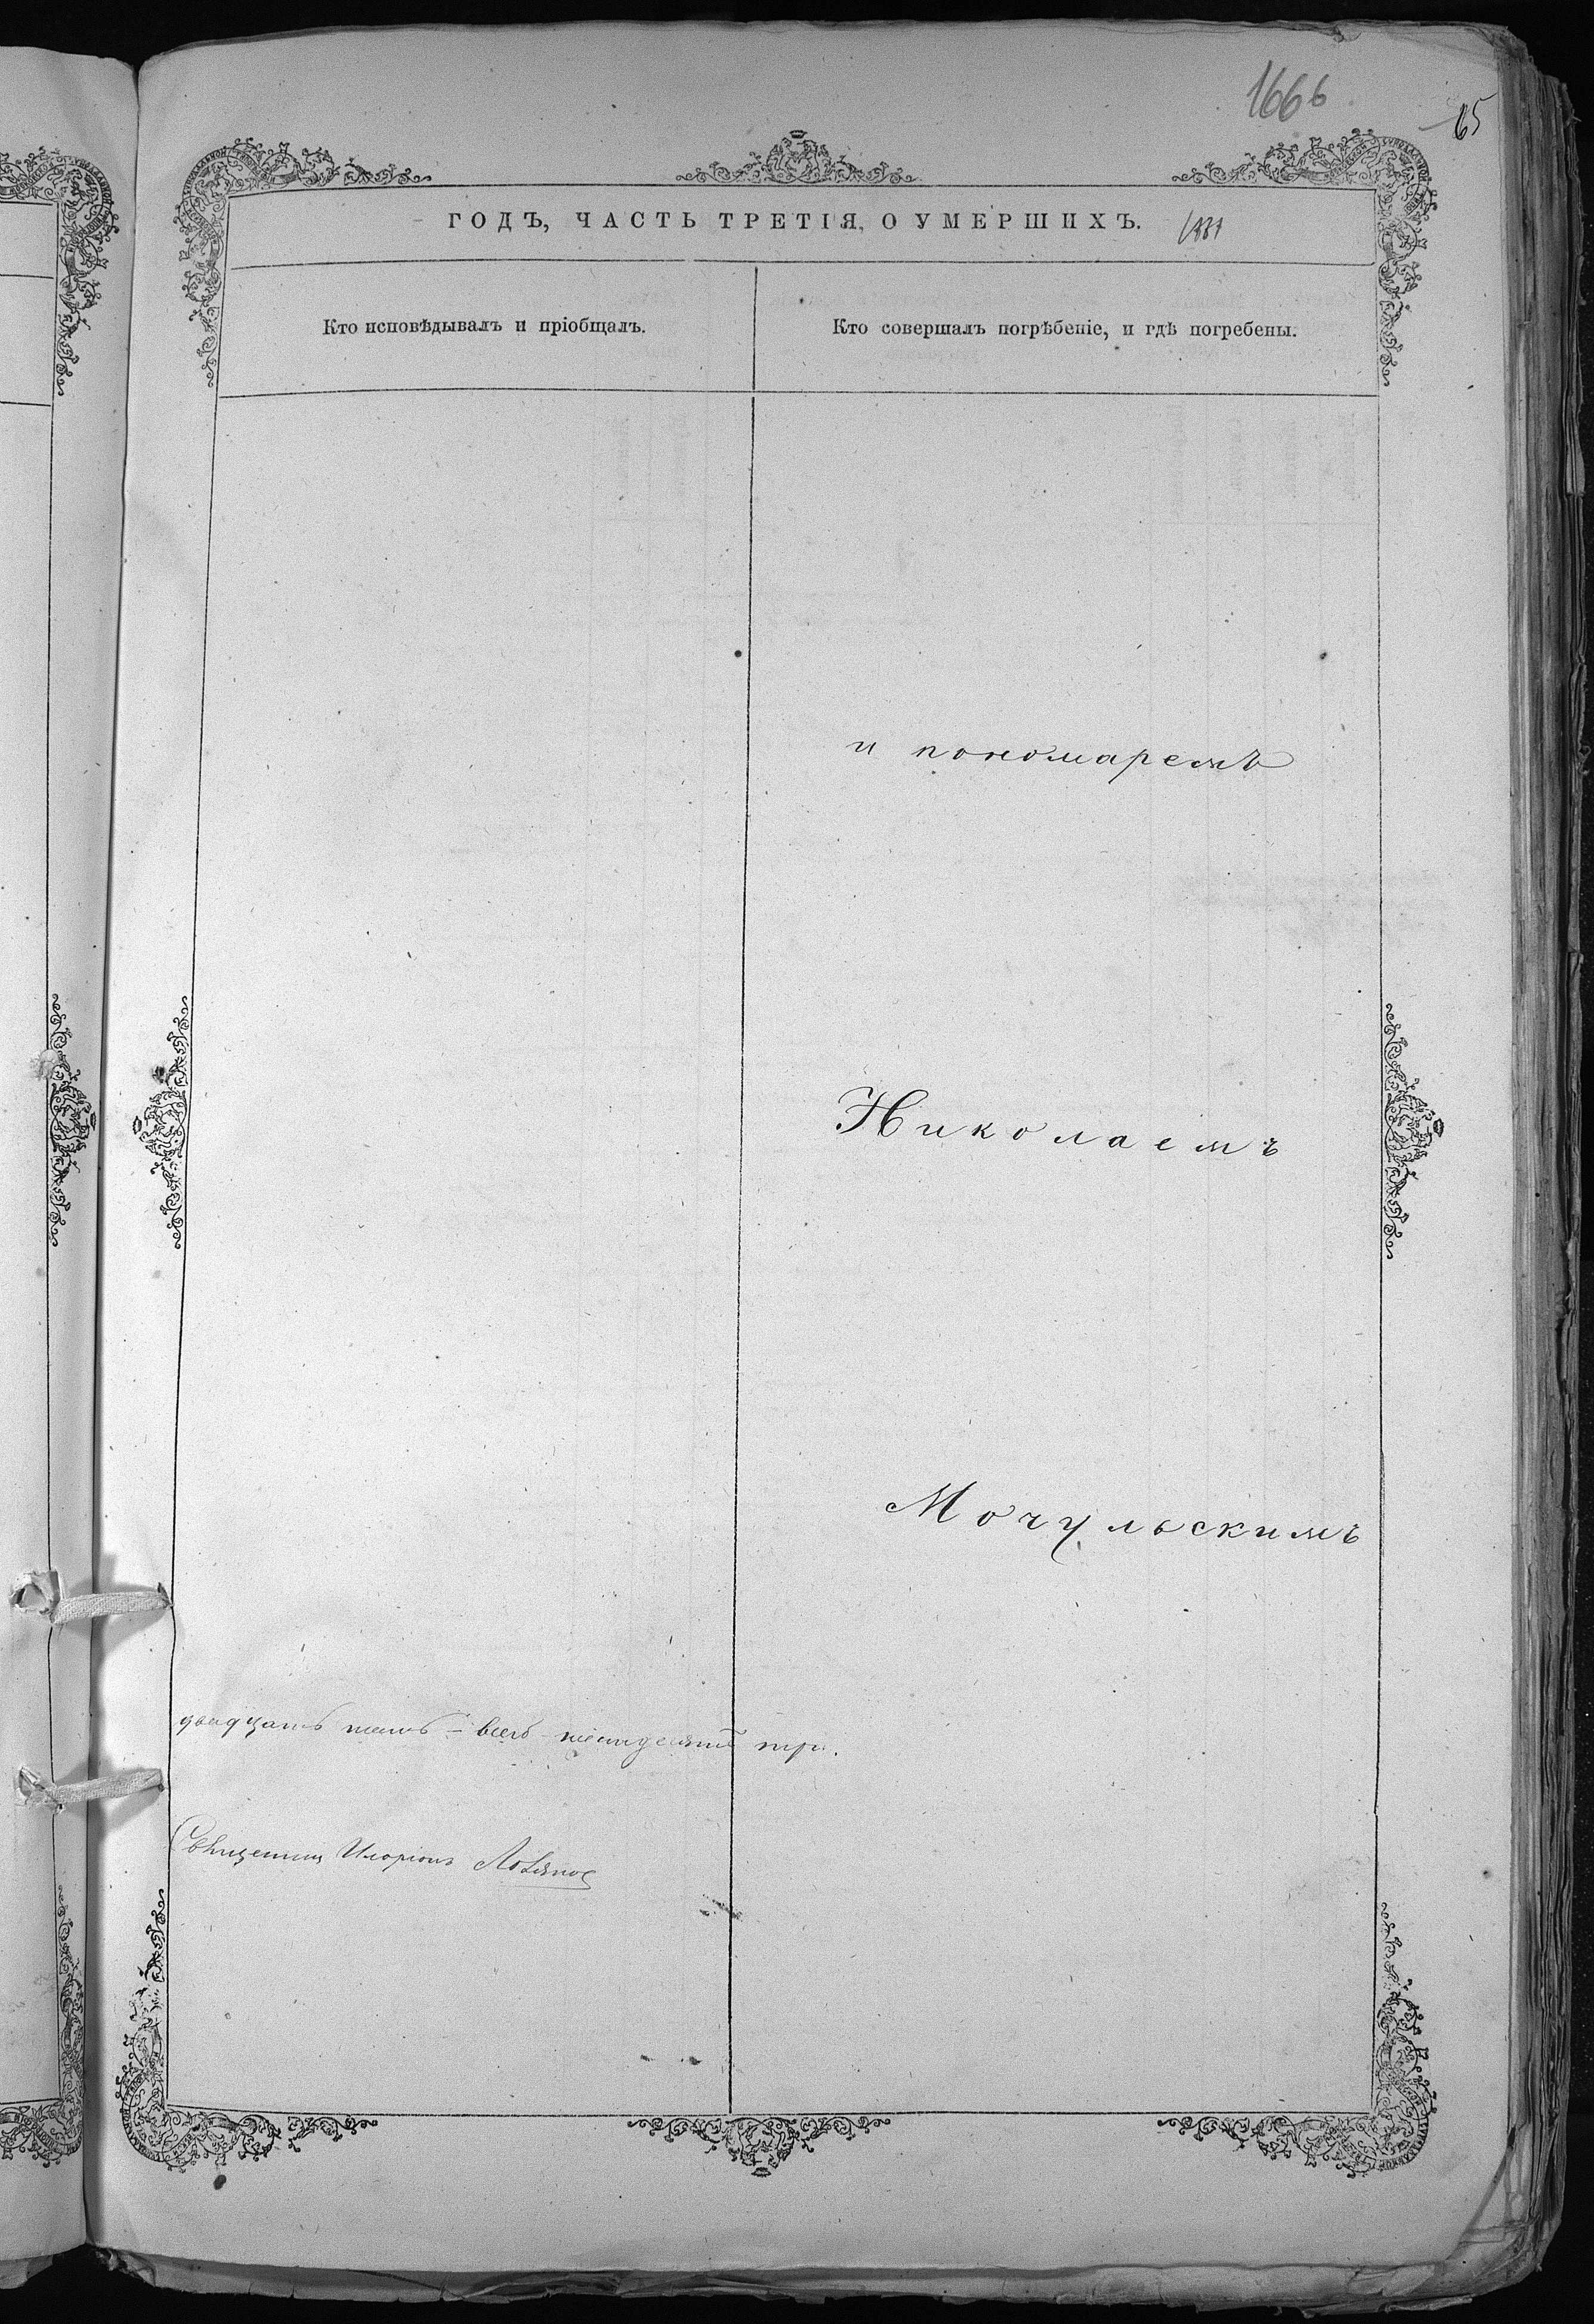 1666
65
ГОДЪ, ЧАСТЬ ТРЕТІЯ, О УМЕРШИХЪ.
Кто исповѣдывалъ и пріобщалъ.
Кто совершалъ погрѣбеніе, и гдѣ погребены.
и пономаремъ
Николаемъ
Мочульскимъ
двадцать - всего три.
Священникъ Иларіонъ